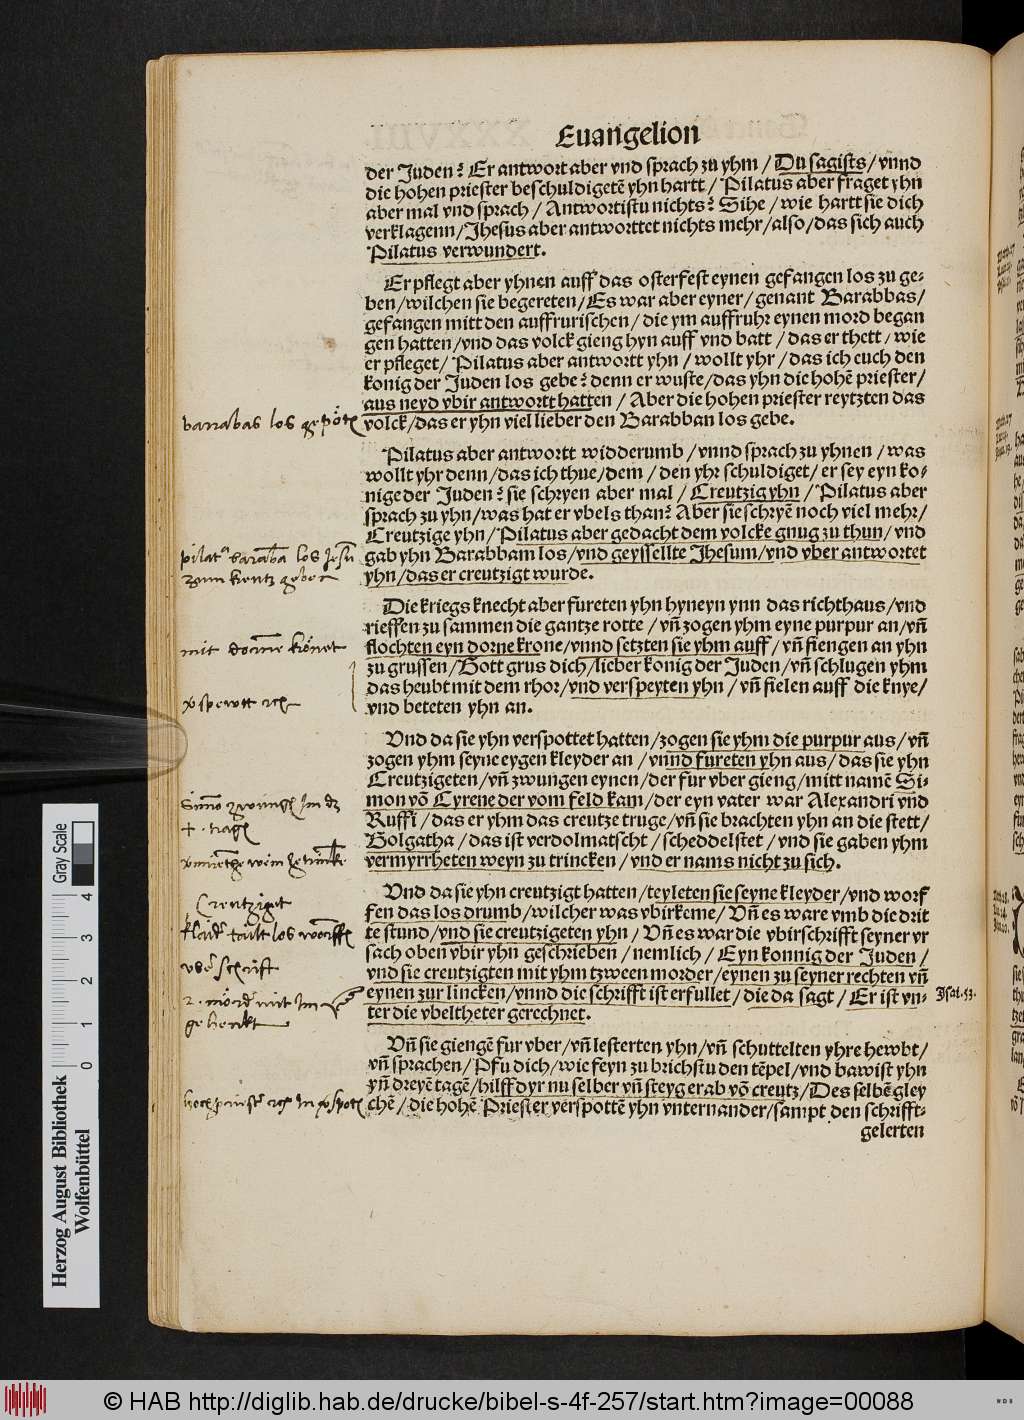 Euangelion
der Juden? Er antwort aber vnd sprach zu yhm / Du sagists / vnnd
die hohen priester beschuldigetē yhn hartt / Pilatus aber fraget yhn
aber mal vnd sprach / Antwortistu nichts? Sihe / wie hartt sie dich
verklagenn / Jhesus aber antworttet nichts mehr / also / das sich auch
Pilatus verwundert.
Er pflegt aber yhnen auff das osterfest eynen gefangen los zu ge-
ben / wilchen sie begereten / Es war aber eyner / genant Barabbas /
gefangen mitt den auffrurischen / die ym auffruhr eynen mord began
gen hatten / vnd das volck gieng hyn auff vnd batt / das er thett / wie
er pfleget / Pilatus aber antwortt yhn / wollt yhr / das ich euch den
konig der Juden los gebe? denn er wuste / das yhn die hohē priester /
aus neyd vbir antwortt hatten / Aber die hohen priester reytzten das
volck / das er yhn viel lieber den Barabban los gebe.
barrabas los
Pilatus aber antwortt widderumb / vnnd sprach zu yhnen / was
wollt yhr denn / das ich thue / dem / den yhr schuldiget / er sey eyn ko-
nige der Juden? sie schryen aber mal / Creutzig yhn / Pilatus aber
sprach zu yhn / was hat er vbels than? Aber sie schryē noch viel mehr /
Creutzige yhn / Pilatus aber gedacht dem volcke gnug zu thun / vnd
gab yhn Barabbam los / vnd geyssellte Jhesum / vnd vber antwortet
yhn / das er creutzigt wurde.
los Jesū
zum kreutz geben
Die kriegs knecht aber fureten yhn hyneyn ynn das richthaus / vnd
rieffen zu sammen die gantze rotte / vñ zogen yhm eyne purpur an / vñ
flochten eyn dorne krone / vnnd setzten sie yhm auff / vñ fiengen an yhn
zu grussen / Gott grus dich / lieber konig der Juden / vñ schlugen yhm
das heubt mit dem rhor / vnd verspeyten yhn / vñ fielen auff die knye /
vnd beteten yhn an.
mit
Vnd da sie yhn verspottet hatten / zogen sie yhm die purpur aus / vñ
zogen yhm seyne eygen kleyder an / vnnd fureten yhn aus / das sie yhn
Creutzigeten / vñ zwungen eynen / der fur vber gieng / mitt namē Si-
mon vō Cyrene der vom feld kam / der eyn vater war Alexandri vnd
Ruffi / das er yhm das creutze truge / vñ sie brachten yhn an die stett /
Golgatha / das ist verdolmatscht / scheddelstet / vnd sie gaben yhm
vermyrrheten weyn zu trincken / vnd er nams nicht zu sich.
Vnd da sie yhn creutzigt hatten / teyleten sie seyne kleyder / vnd worf
fen das los drumb / wilcher was vbirkeme / Vñ es ware vmb die drit
te stund / vnd sie creutzigeten yhn / Vñ es war die vbirschrifft seyner vr
sach oben vbir yhn geschrieben / nemlich / Eyn konnig der Juden /
vnd sie creutzigten mit yhm tzween morder / eynen zu seyner rechten vñ
eynen zur lincken / vnnd die schrifft ist erfullet / die da sagt / Er ist vn-
ter die vbeltheter gerechnet.
Jsai. 53.
Creutziget
gehenkt
Vñ sie giengē fur vber / vñ lesterten yhn / vñ schuttelten yhre hewbt /
vñ sprachen / Pfu dich / wie feyn zu brichstu den tēpel / vnd bawist yhn
yñ dreyē tagē / hilff dyr nu selber vñ steyg erab vō creutz / Des selbē gley
chē / die hohē Priester verspottē yhn vnternander / sampt den schrifft-
gelerten
Herzog August Bibliothek
Wolfenbüttel
Gray Scale
0 1 2 3 4
© HAB http://diglib.hab.de/drucke/bibel-s-4f-257/start.htm?image=00088